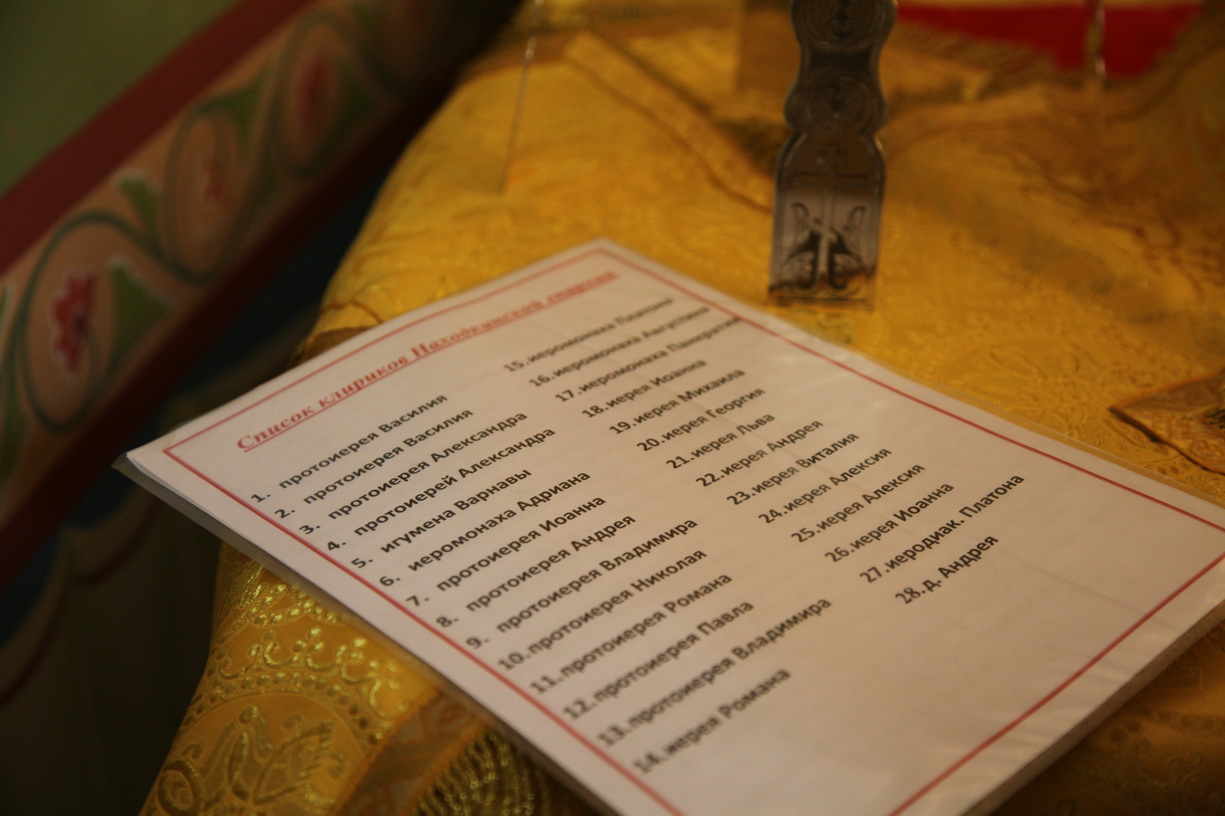 Список клириков Находкинской епархии
1. протоиерея Василия
2. протоиерея Василия
3. протоиерея Александра
4. протоиерей Александра
5. игумена Варнавы
6. иеромонаха Адриана
7. протоиерея Иоанна
8. протоиерея Андрея
9. протоиерея Владимира
10. протоиерея Николая
11. протоиерея Романа
12. протоиерея Павла
13. протоиерея Владимира
14. иерея Романа
15. иеромонаха
16. иеромонаха Августина
17. иеромонаха Панкратия
18. иерея Иоанна
19. иерея Михаила
20. иерея Георгия
21. иерея Льва
22. иерея Андрея
23. иерея Виталия
24. иерея Алексия
25. иерея Алексия
26. иерея Иоанна
27. иеродиак. Платона
28. д. Андрея